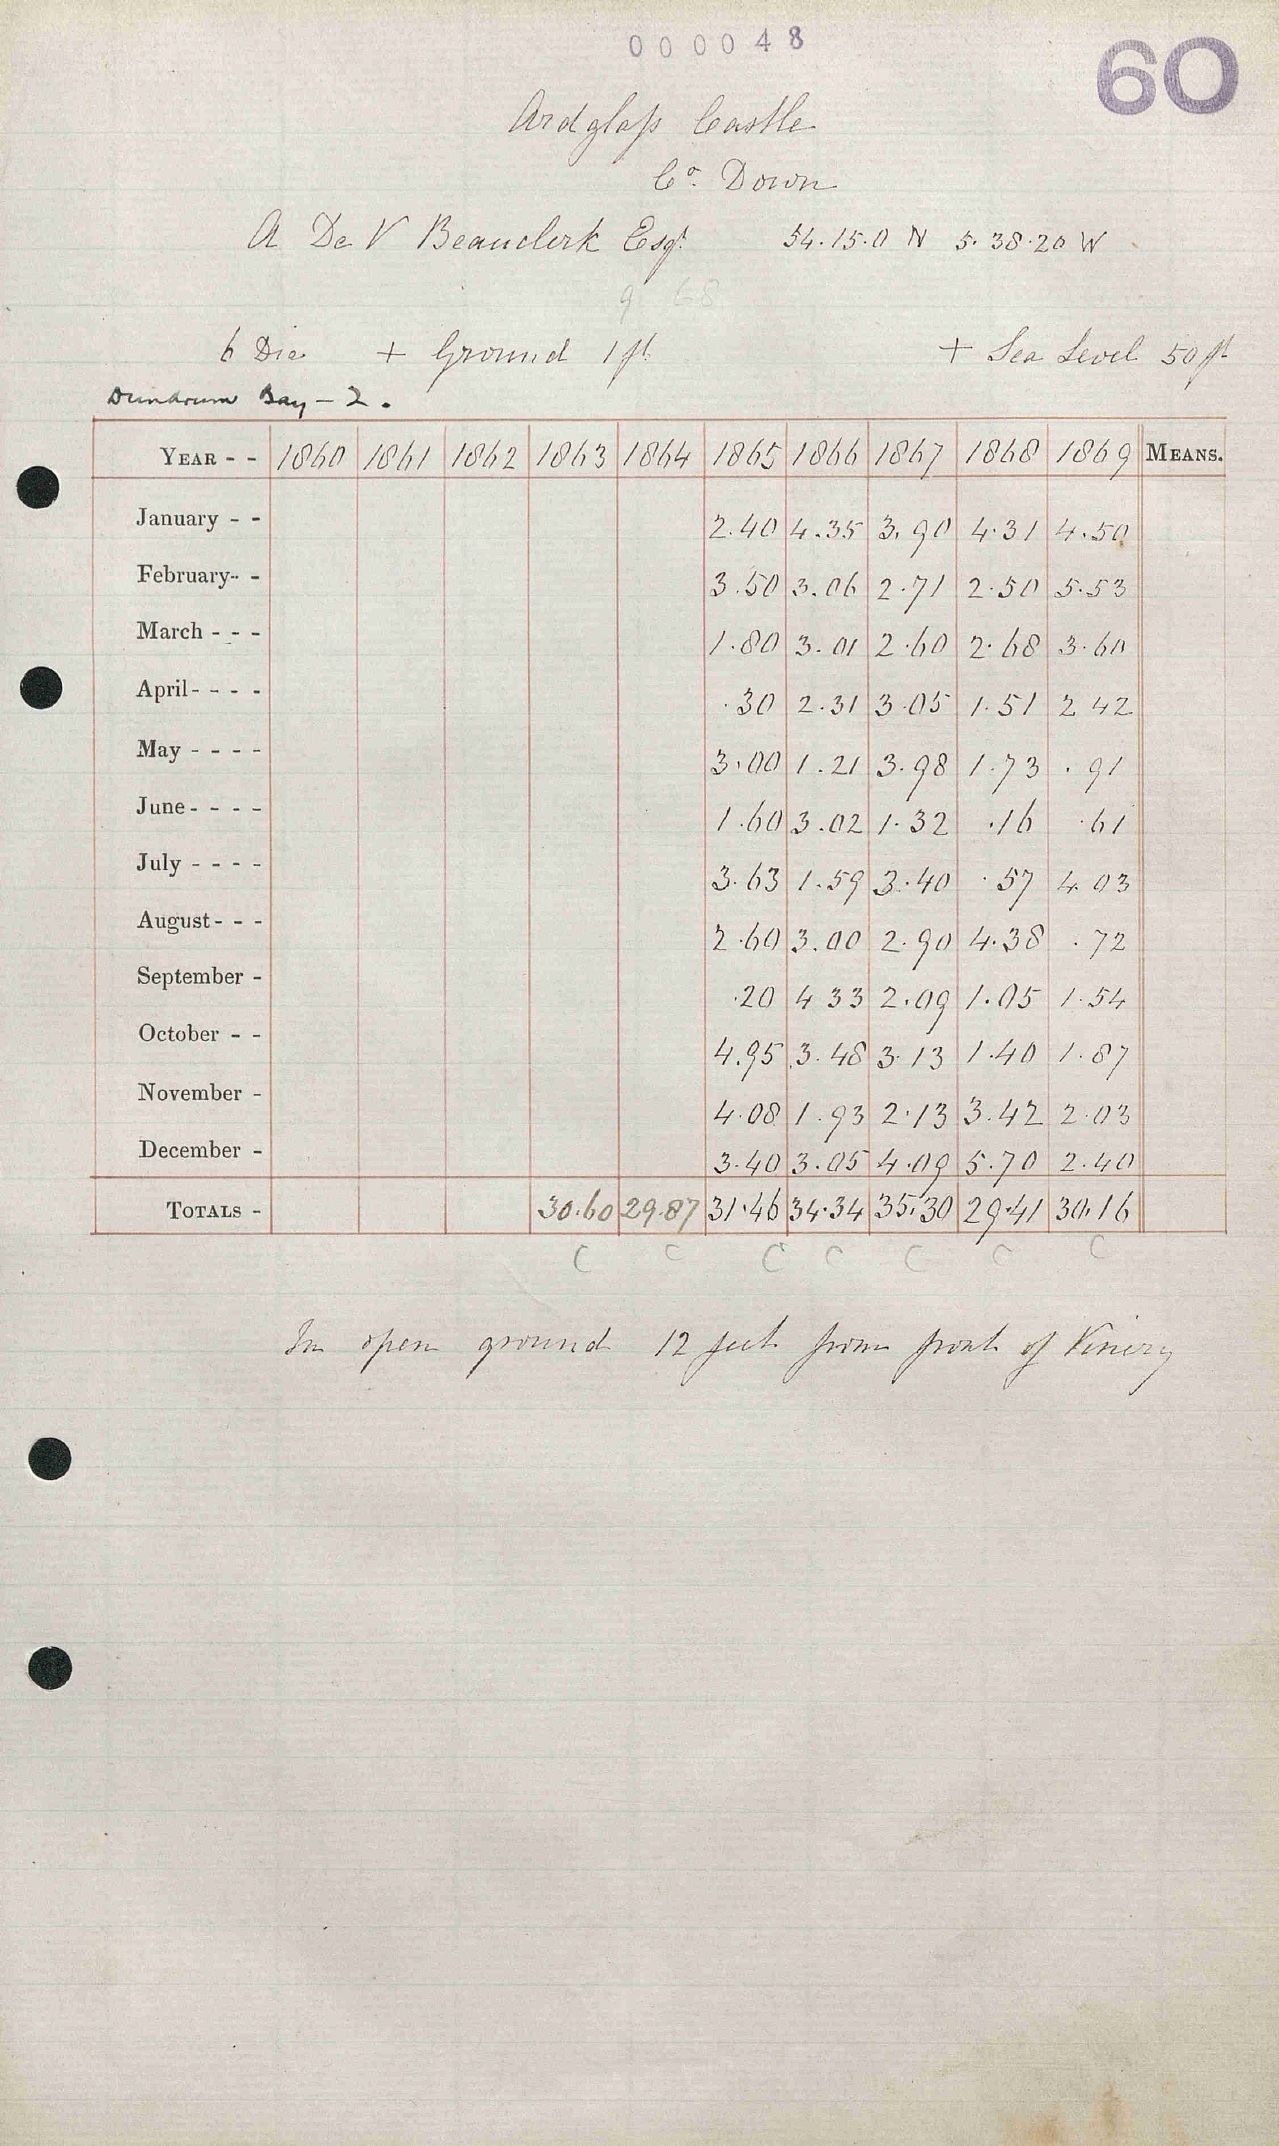 000048
60
Ardglass Castle
Co. Down
A De V Beauclerk Esqr. 54.15.0 N 5.38.20 W
9 68
6 Dia + Ground 1 ft + Sea Level 50 ft
Dundrum Bay - 2.
YEAR - - 1860 1861 1862 1863 1864 1865 1866 1867 1868 1869 MEANS.
January - - 2.40 4.35 3.90 4.31 4.50
February - - 3.50 3.06 2.71 2.50 5.53
March - - - 1.80 3.01 2.60 2.68 3.60
April - - - - .30 2.31 3.05 1.51 2 42
May - - - - 3.00 1.21 3.98 1.73 .91
June - - - - 1.60 3.02 1.32 .16 .61
July - - - - 3.63 1.59 3.40 .57 4.03
August - - - 2.60 3.00 2.90 4.38 .72
September - .20 4 33 2.09 1.05 1.54
October - - 4.95 3.48 3.13 1.40 1.87
November - 4.08 1.93 2.13 3.42 2.03
December - 3.40 3.05 4.09 5.70 2.40
TOTALS - 30.60 29.87 31.46 34.34 35.30 29.41 30.16
C C C C C C C
In open ground 12 feet from front of Vinery